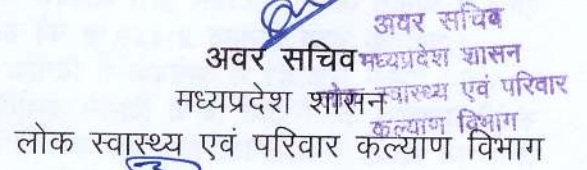 अवर सचिव
मध्यप्रदेश शासन
लोक स्वास्थ्य एवं परिवार कल्याण विभाग
अवर सचिव
मध्यप्रदेश शासन
स्वास्थ्य एवं परिवार
कल्याण विभाग